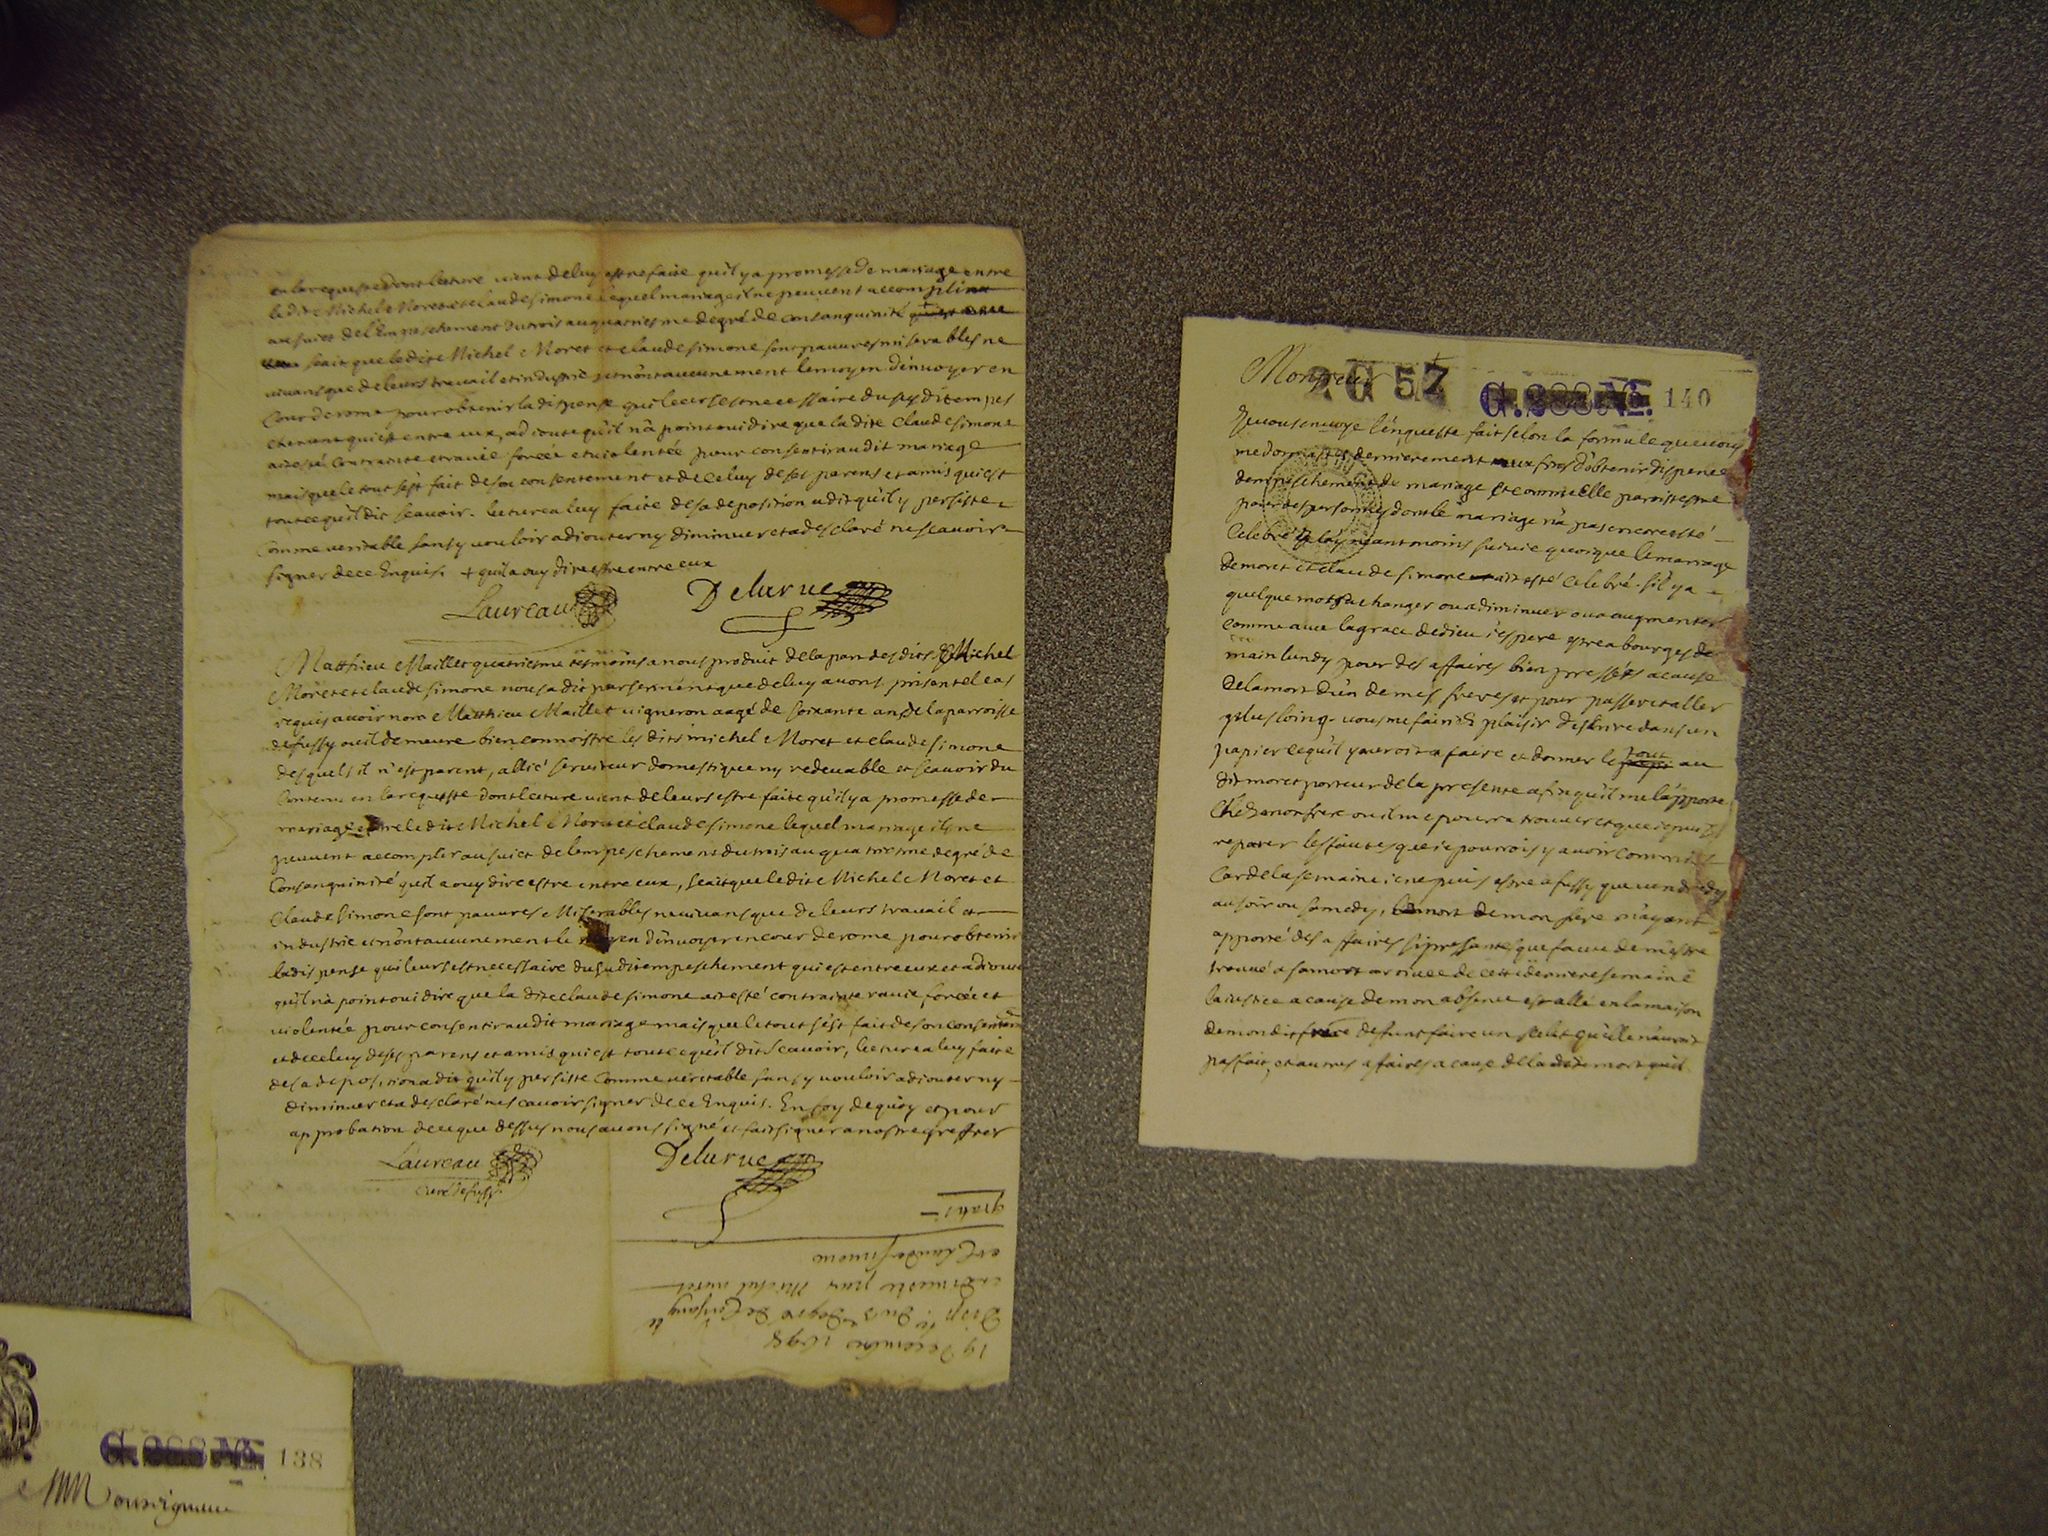 en la requeste dont lecture vient de luy estre faite qu'il y a promesse de mariage entre
ledit Michel Moret et claude simone lequel mariage il ne peuvent accomplir
au suiet de l'Empeschement du trois au quatriesme degré de consanguinité
scait que ledit Michel Moret et claude simone sont pauvres miserables ne
vivans que de leurs travail et industrie et n'ont aucunement le moyen d'envoyer en
Cour de rome pour obtenir la dispense qui leur est necessaire du susdit empes
chement qui est entre eux, adioute qu'il n'a point oui dire que la dite Claude simone
ait esté contrainte et ravie forcée et violentée pour consentir audit mariage
mais que le tout s'est fait de son consentement et de celuy de ses parens et amis qui est
tout ce qu'il dit scavoir. lecture a luy faite de sa deposition a dit qu'il y persiste
comme veritable sans y vouloir adiouter ny diminuer et a desclaré ne scavoir
signer de ce Enquis. + qu'il a ouy dire estre entre eux
Laureau Delarue
Matthieu Maillet quatriesme tesmoins a nous produit de la part desdits Michel
Moret et claude simone nous a dit par serment que de luy avons pris en tel cas
requis avoir nom Matthieu Maillet vigneron aagé de soixante ans de la parroisse
de fussy ou il demeure bien connoistre les dits michel Moret et claude simone
desquels il n'est parent, allié serviteur domestique ny redevable et scavoir du
contenu en la requeste dont lecture vient de leurs estre faite qu'il y a promesse de
mariage entre ledit Michel Moret et claude simone lequel mariage ils ne
peuvent accomplir au suiet de lempeschement du trois au quatriesme degré de
Consanguinité qu'il a ouy dire estre entre eux, scait que ledit Michel Moret et
Claude simone sont pauvres Miserables ne vivans que de leurs travail et
industrie et n'ont aucunement le moyen d'envoyer en cour de rome pour obtenir
la dispense qui leurs est necessaire du susdit empeschement qui est entre eux et adioute
qu'il n'a point oui dire que la dite claude simone ait esté contrainte ravie forcée et
violentée pour consentir audit mariage mais que le tout s'est fait de son consentement
et de celuy de ses parens et amis qui est tout ce qu'il dit scavoir, lecture a luy faite
de sa deposition a dit qu'il y persiste comme veritable sans y vouloir adiouter ny
diminuer et a desclaré ne scavoir signer de ce Enquis. En foy de quoy et pour
approbation de ce que dessus nous avons signé et fait signer a nostre greffier
Laureau Delarue
curé de fussy
19 decembre 1698
Disp. du 3e degré de Consang.te
Michel moret
et Claude simone
gratis
G. 288 No. 138
Monseigneur
Monsieur 2G 57 G. 288 No. 140
Je vous envoye l'enqueste fait selon la formule que vous
me donnastes dernierement aux fins d'obtenir dispence
dempeschement de mariage et comme elle paroist estre
pour des personnes dont le mariage n'a pas encore esté
celebré je l'ay neantmoins suivie quoique le mariage
de moret et claude simone ait esté celebré. s'il y a
quelque mots a changer ou a diminuer ou a augmenter
comme avec la grace de dieu i'espere estre a bourges de
main lundy pour des affaires bien pressées a cause
de la mort d'un de mes freres et pour passer et aller
plus loing. vous me fairiés plaisir d'escrire dans un
papier ce qu'il y auroit a faire et donner le tout au
dit moret porteur de la presente afin qu'il me l'apporte
chez mon frere ou il me pourra trouver et que ie puisse
reparer les fautes que ie pourrois y avoir commises
Car de la semaine ie ne puis estre a fussy que vendredy
au soir ou samedy, la mort de mon frere m'ayant
apporté des affaires si presantes que faute de m'estre
trouvé a sa mort arrivée de cette derniere semaine
la iustice a cause de mon absence est allé en la maison
de mondit frere defunt faire un scelét qu'elle n'auroit
pas fait, et autres affaires a cause de la dite mort qu'il